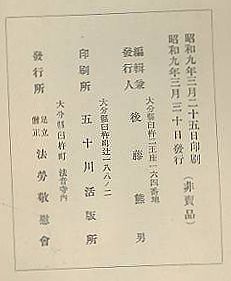 昭和九年三月二十五日印刷
昭和九年三月三十日發行
(非賣品)
大分縣臼杵町二王座一六四番地
編輯兼
發行人
後藤熊男
大分縣臼杵町辻一八八ノ二
印刷所
五十川活版所
大分縣臼杵町 法音寺內
發行所
足立
僧正
法勞敬慰會